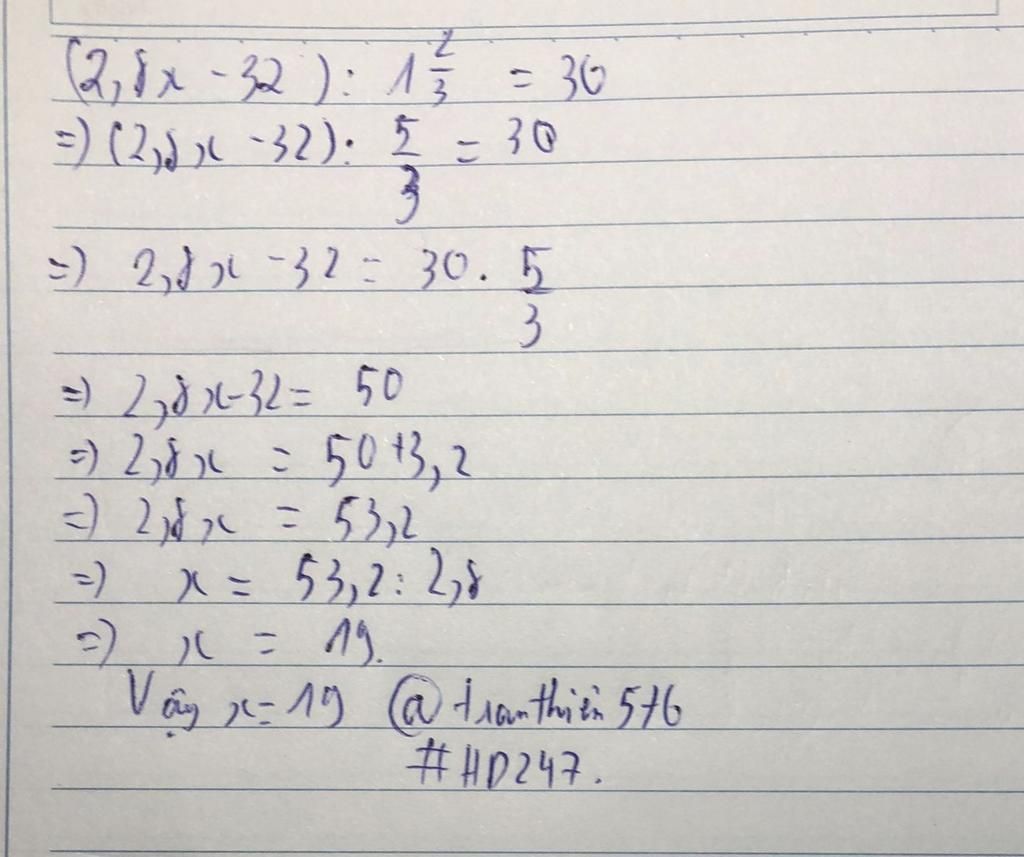 (2,8x - 32) : 1 2/3 = 30
=) (2,8x - 32) : 5/3 = 30
=) 2,8x - 32 = 30 . 5/3
=) 2,8x - 32 = 50
=) 2,8x = 50 + 3,2
=) 2,8x = 53,2
=) x = 53,2 : 2,8
=) x = 19.
Vậy x = 19 @tranthiên576
#HD247.